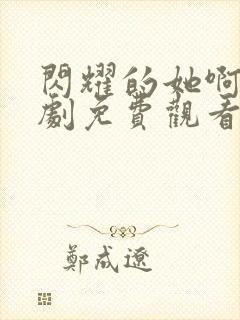 閃耀的她啊
劇免費觀看
鄭成遼